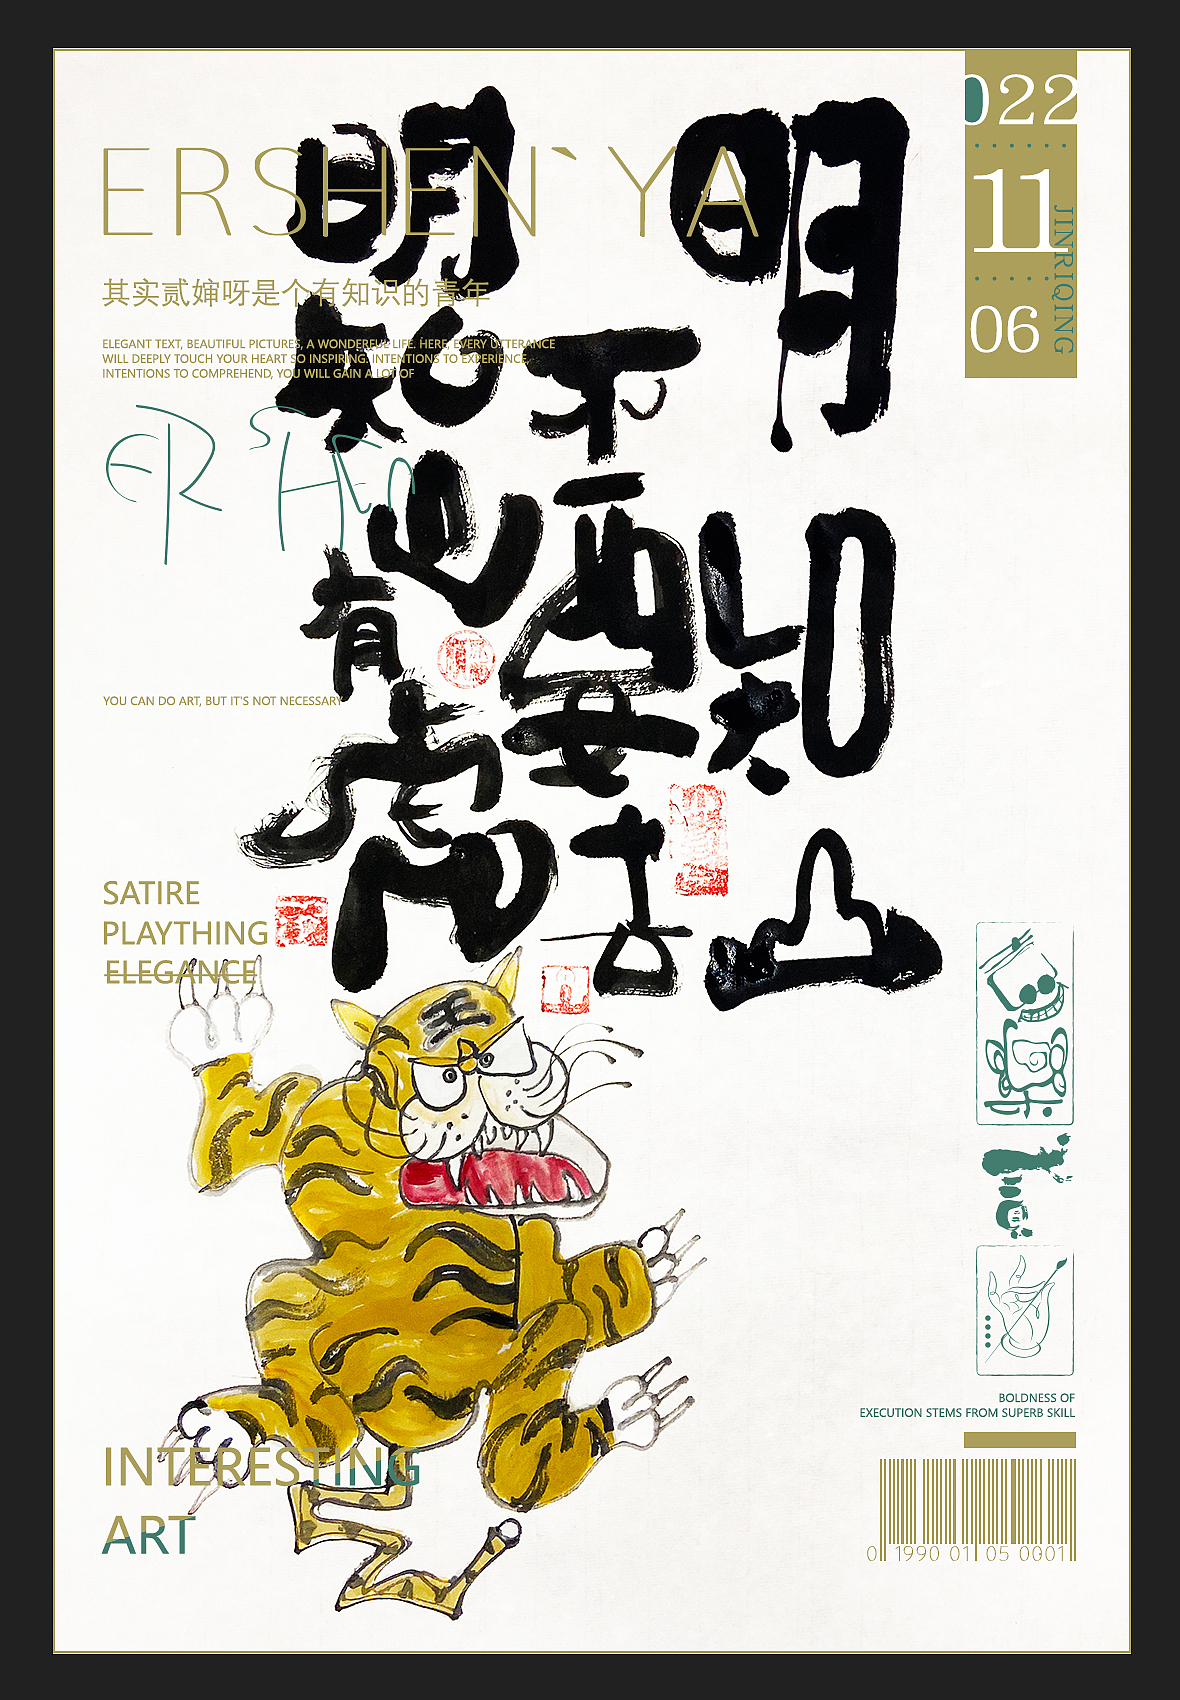 ERSHEN`YA
其实贰婶呀是个有知识的青年
ELEGANT TEXT, BEAUTIFUL PICTURES, A WONDERFUL LIFE. HERE, EVERY UTTERANCE
WILL DEEPLY TOUCH YOUR HEART SO INSPIRING. INTENTIONS TO EXPERIENCE,
INTENTIONS TO COMPREHEND, YOU WILL GAIN A LOT OF
ERSHEN
022
11
06
JINRIQING
明知山
不要去
明知也有虎
YOU CAN DO ART, BUT IT'S NOT NECESSARY
SATIRE
PLAYTHING
ELEGANCE
王
INTERESTING
ART
BOLDNESS OF
EXECUTION STEMS FROM SUPERB SKILL
0 1990 01 05 0001